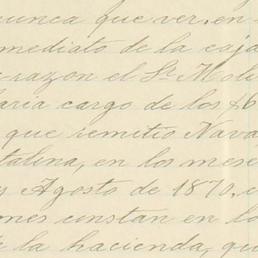 nunca que ver, en
mediato de la caja
razon el Sr. Moli
aria cargo de los $6
que remitio Nava
talina, en los mese
Agosto de 1870, c
ones constan en lo
la hacienda, qu